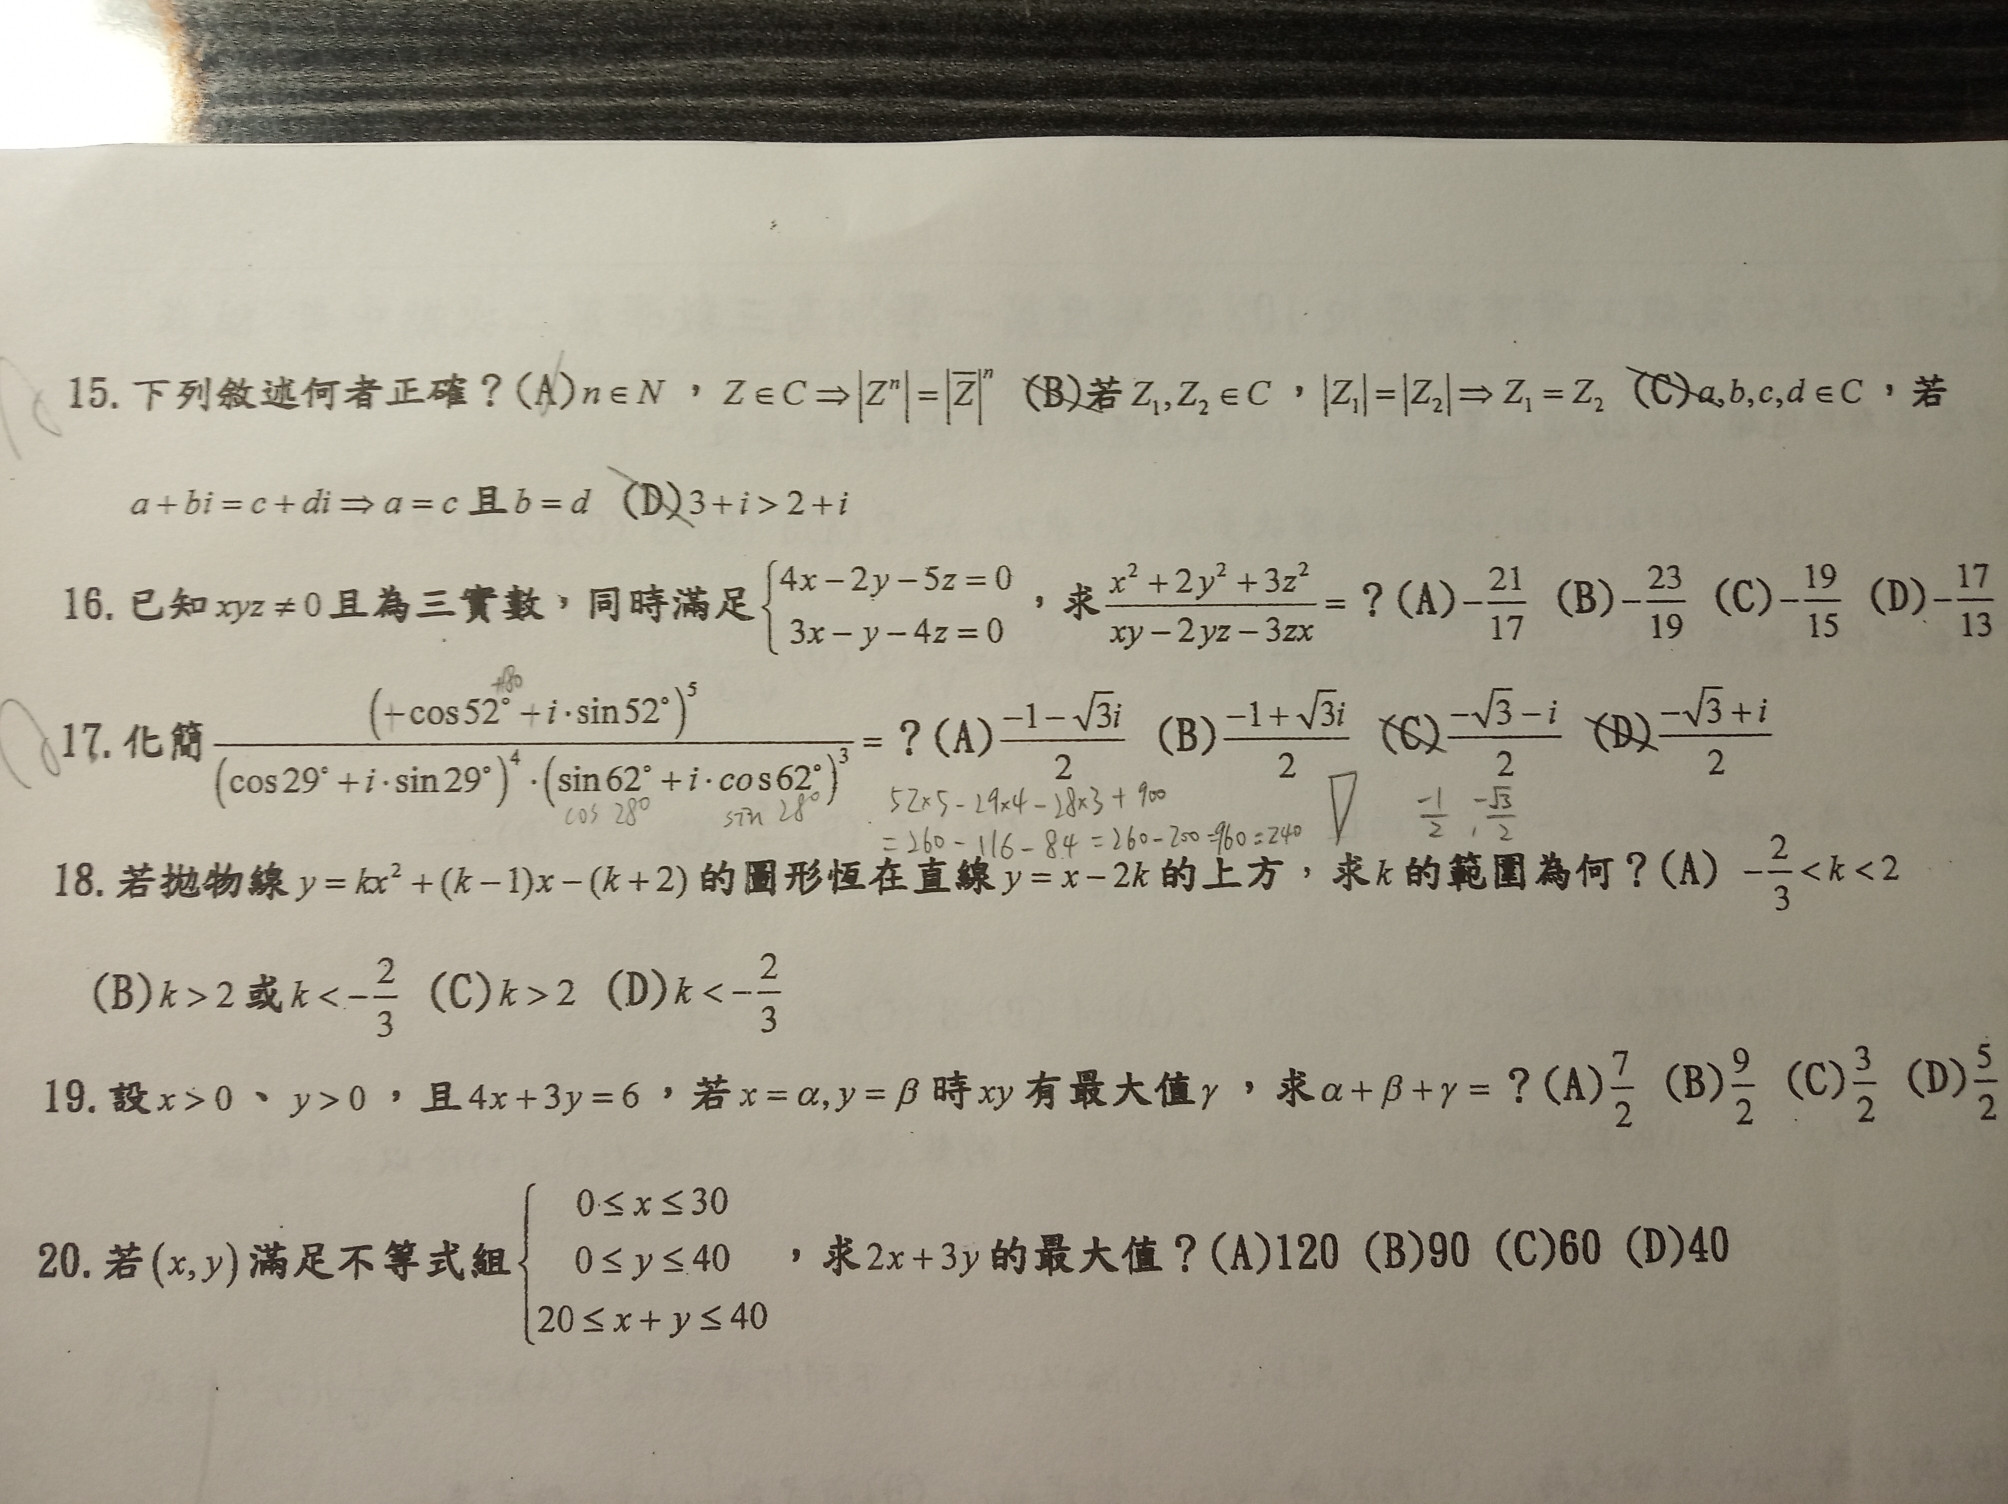 15. 下列敘述何者正確？(A) n∈N ， Z∈C⇒|Zⁿ|=|Z̅|ⁿ (B)若 Z₁,Z₂∈C ， |Z₁|=|Z₂|⇒Z₁=Z₂ (C) a,b,c,d∈C ，若
a+bi=c+di⇒a=c 且 b=d (D) 3+i>2+i
16. 已知 xyz≠0 且為三實數，同時滿足 {4x−2y−5z=0, 3x−y−4z=0 ，求 (x²+2y²+3z²)/(xy−2yz−3zx) = ？(A) −21/17 (B) −23/19 (C) −19/15 (D) −17/13
+180
17. 化簡 (−cos52°+i·sin52°)⁵ / ((cos29°+i·sin29°)⁴·(sin62°+i·cos62°)³) = ？(A) (−1−√3i)/2 (B) (−1+√3i)/2 (C) (−√3−i)/2 (D) (−√3+i)/2
cos 28° sin 28° 52×5−29×4−28×3+900 −1/2 , −√3/2
=260−116−84=260−200
18. 若拋物線 y=kx²+(k−1)x−(k+2) 的圖形恆在直線 y=x−2k 的上方，求 k 的範圍為何？(A) −2/3<k<2
(B) k>2 或 k<−2/3 (C) k>2 (D) k<−2/3
19. 設 x>0 、 y>0 ，且 4x+3y=6 ，若 x=α,y=β 時 xy 有最大值 γ ，求 α+β+γ= ？(A) 7/2 (B) 9/2 (C) 3/2 (D) 5/2
20. 若 (x,y) 滿足不等式組 {0≤x≤30, 0≤y≤40, 20≤x+y≤40 ，求 2x+3y 的最大值？(A)120 (B)90 (C)60 (D)40